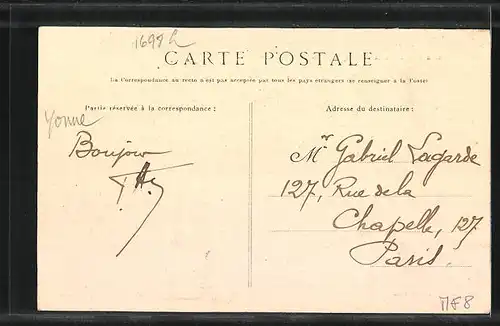 1698 L
CARTE POSTALE
La Correspondance au recto n'est pas acceptée par tous les pays étrangers (se renseigner à la Poste)
Partie réservée à la correspondance :
Adresse du destinataire :
Yonne
Bonjour
Mr Gabriel Lagarde
127, Rue de la
Chapelle, 127
Paris.
MF8